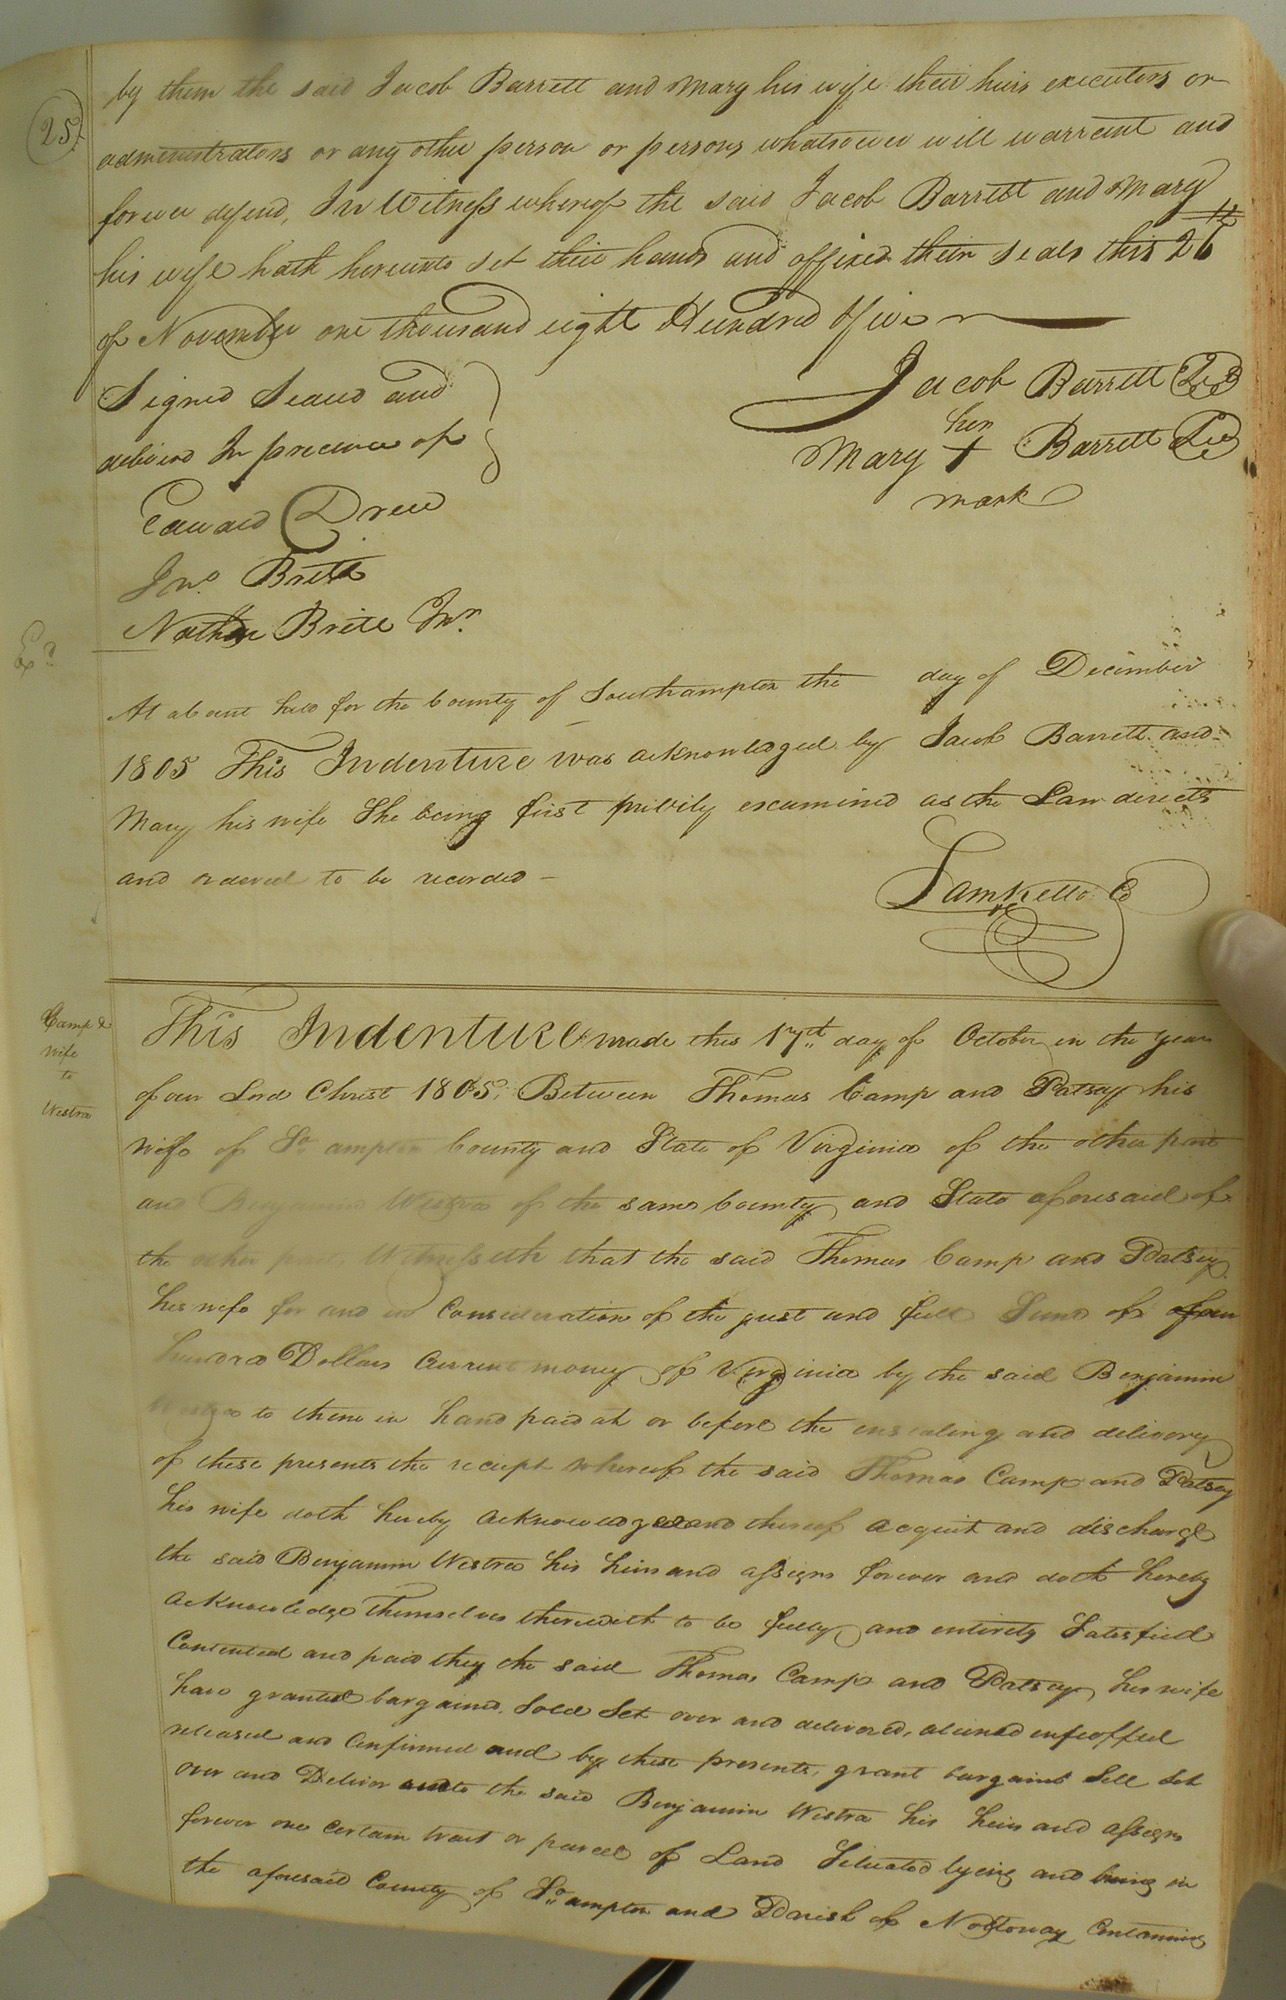 25
by them the said Jacob Barrett and Mary his wife their heirs executors or
administrators or any other person or persons whatsoever will warrant and
forever defend, In Witness whereof the said Jacob Barrett and Mary
his wife hath hereunto set their hands and affixed their seals this 26th
of November one thousand eight Hundred & five
Signed Sealed and
delivered In presence of
Jacob Barrett
her
Mary + Barrett
mark
Edward Drew
Jno. Brett
Nathan Brite Jnr.
Exd.
At a Court held for the County of Southampton the day of December
1805 This Indenture was acknowledged by Jacob Barrett and
Mary his wife She being first privily examined as the Law directs
and ordered to be recorded
Saml Kello CC
Camp & wife to Westra
This Indenture made this 17th day of October in the year
of our Lord Christ 1805, Between Thomas Camp and Patsey his
wife of So. ampton County and State of Virginia of the other part
and Benjamin Westra of the same County and State aforesaid of
the other part, Witnesseth that the said Thomas Camp and Patsey
his wife for and in Consideration of the just and full Sum of
hundred Dollars Current money of Virginia by the said Benjamin
Westra to them in hand paid at or before the ensealing and delivery
of these presents the receipt whereof the said Thomas Camp and Patsey
his wife doth hereby acknowledge and thereof acquit and discharge
the said Benjamin Westra his heirs and assigns forever and doth hereby
Acknowledge Themselves therewith to be fully and entirely Satisfied
Contented and paid they the said Thomas Camp and Patsey his wife
have granted bargained Sold Set over and delivered, aliened enfeoffed
released and Confirmed and by these presents, grant bargain Sell Set
over and Deliver unto the said Benjamin Westra his heirs and assigns
forever one certain tract or parcel of Land Situated lyeing and being in
the aforesaid County of So. ampton and Parish of Nottoway Containing